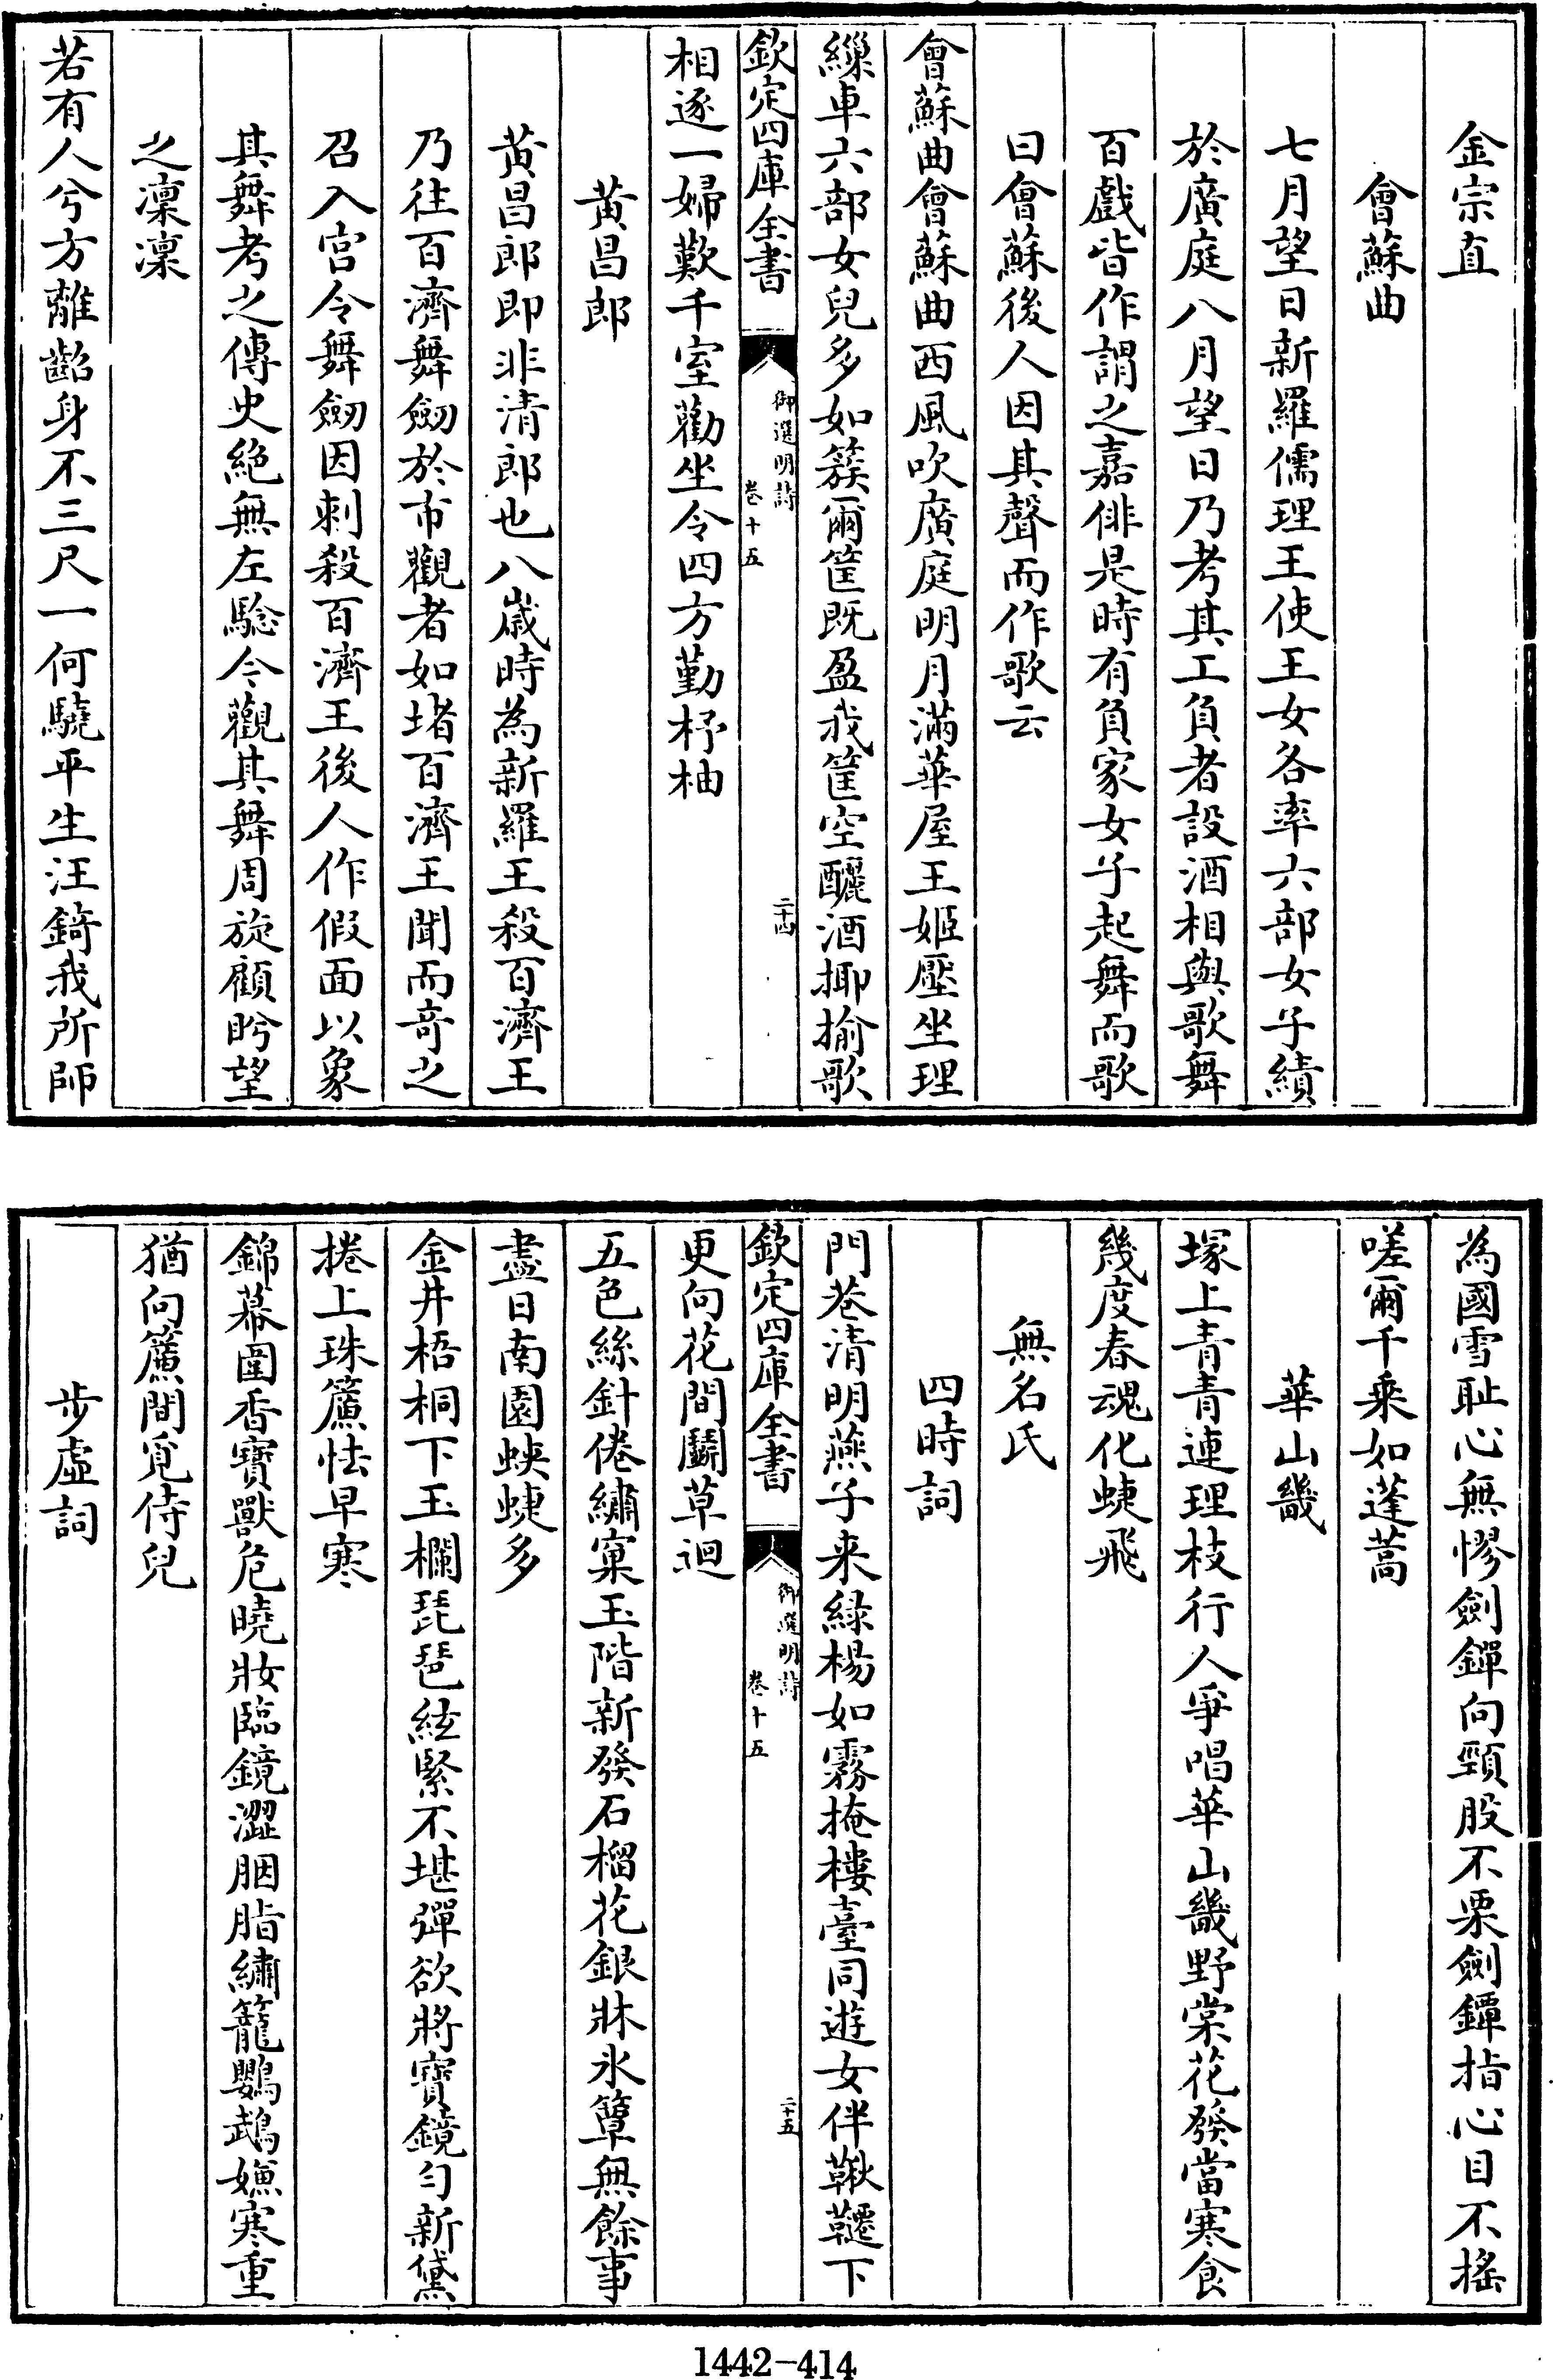 金宗直
會蘇曲
七月望日新羅儒理王使王女各率六部女子績
於廣庭八月望日乃考其工負者設酒相與歌舞
百戲皆作謂之嘉俳是時有負家女子起舞而歌
曰會蘇後人因其聲而作歌云
會蘇曲會蘇曲西風吹廣庭明月滿華屋王姬壓坐理
繅車六部女兒多如簇爾筐既盈我筐空釃酒揶揄歌
欽定四庫全書
御選明詩
卷十五
二十四
相逐一婦歎千室勸坐令四方勤杼柚
黃昌郎
黃昌郎即非清郎也八歲時為新羅王殺百濟王
乃往百濟舞劒於市觀者如堵百濟王聞而竒之
召入宮令舞劒因刺殺百濟王後人作假面以象
其舞考之傳史絶無左騐今觀其舞周旋顧眄望
之凜凜
若有人兮方離齠身不三尺一何驍平生汪錡我所師
為國雪耻心無憀劍鐔向頸股不栗劍鐔指心目不搖
嗟爾千乘如蓬蒿
華山畿
塚上青青連理枝行人爭唱華山畿野棠花發當寒食
幾度春魂化蜨飛
無名氏
四時詞
門巷清明燕子来綠楊如霧掩樓臺同遊女伴鞦韆下
欽定四庫全書
御選明詩
卷十五
二十五
更向花間鬬草迴
五色絲針倦繡窠玉階新發石榴花銀牀氷簟無餘事
盡日南園蛺蜨多
金井梧桐下玉欄琵琶絃緊不堪彈欲將寶鏡勻新黛
捲上珠簾怯早寒
錦幕圍香寶獸危曉妝臨鏡澀胭脂繡籠鸚鵡嫌寒重
猶向簾間覓侍兒
步虛詞
1442-414